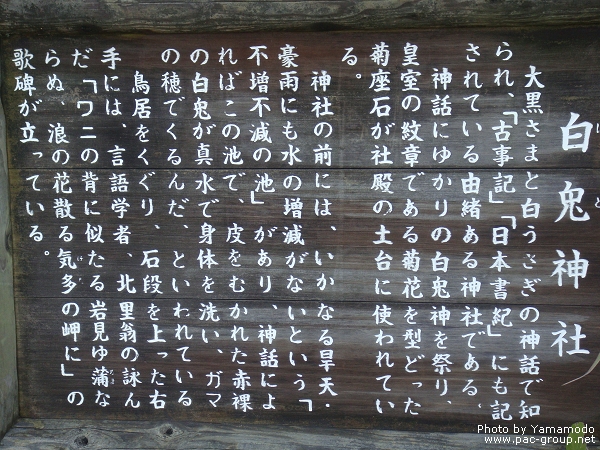 白兎神社
大黒さまと白うさぎの神話で知
られ、「古事記」「日本書紀」にも記
されている由緒ある神社である。
神話にゆかりの白兎神を祭り、
皇室の紋章である菊花を型どった
菊座石が社殿の土台に使われてい
る。
神社の前には、いかなる旱天・
豪雨にも水の増減がないという「
不増不減の池」があり、神話によ
ればこの池で、皮をむかれた赤裸
の白兎が真水で身体を洗い、ガマ
の穂でくるんだ、といわれている
鳥居をくぐり、石段を上った右
手には、言語学者、北里翁の詠ん
だ「ワニの背に似たる岩見ゆ蒲な
らぬ、浪の花散る気多の岬に」の
歌碑が立っている。
Photo by Yamamodo
www.pac-group.net